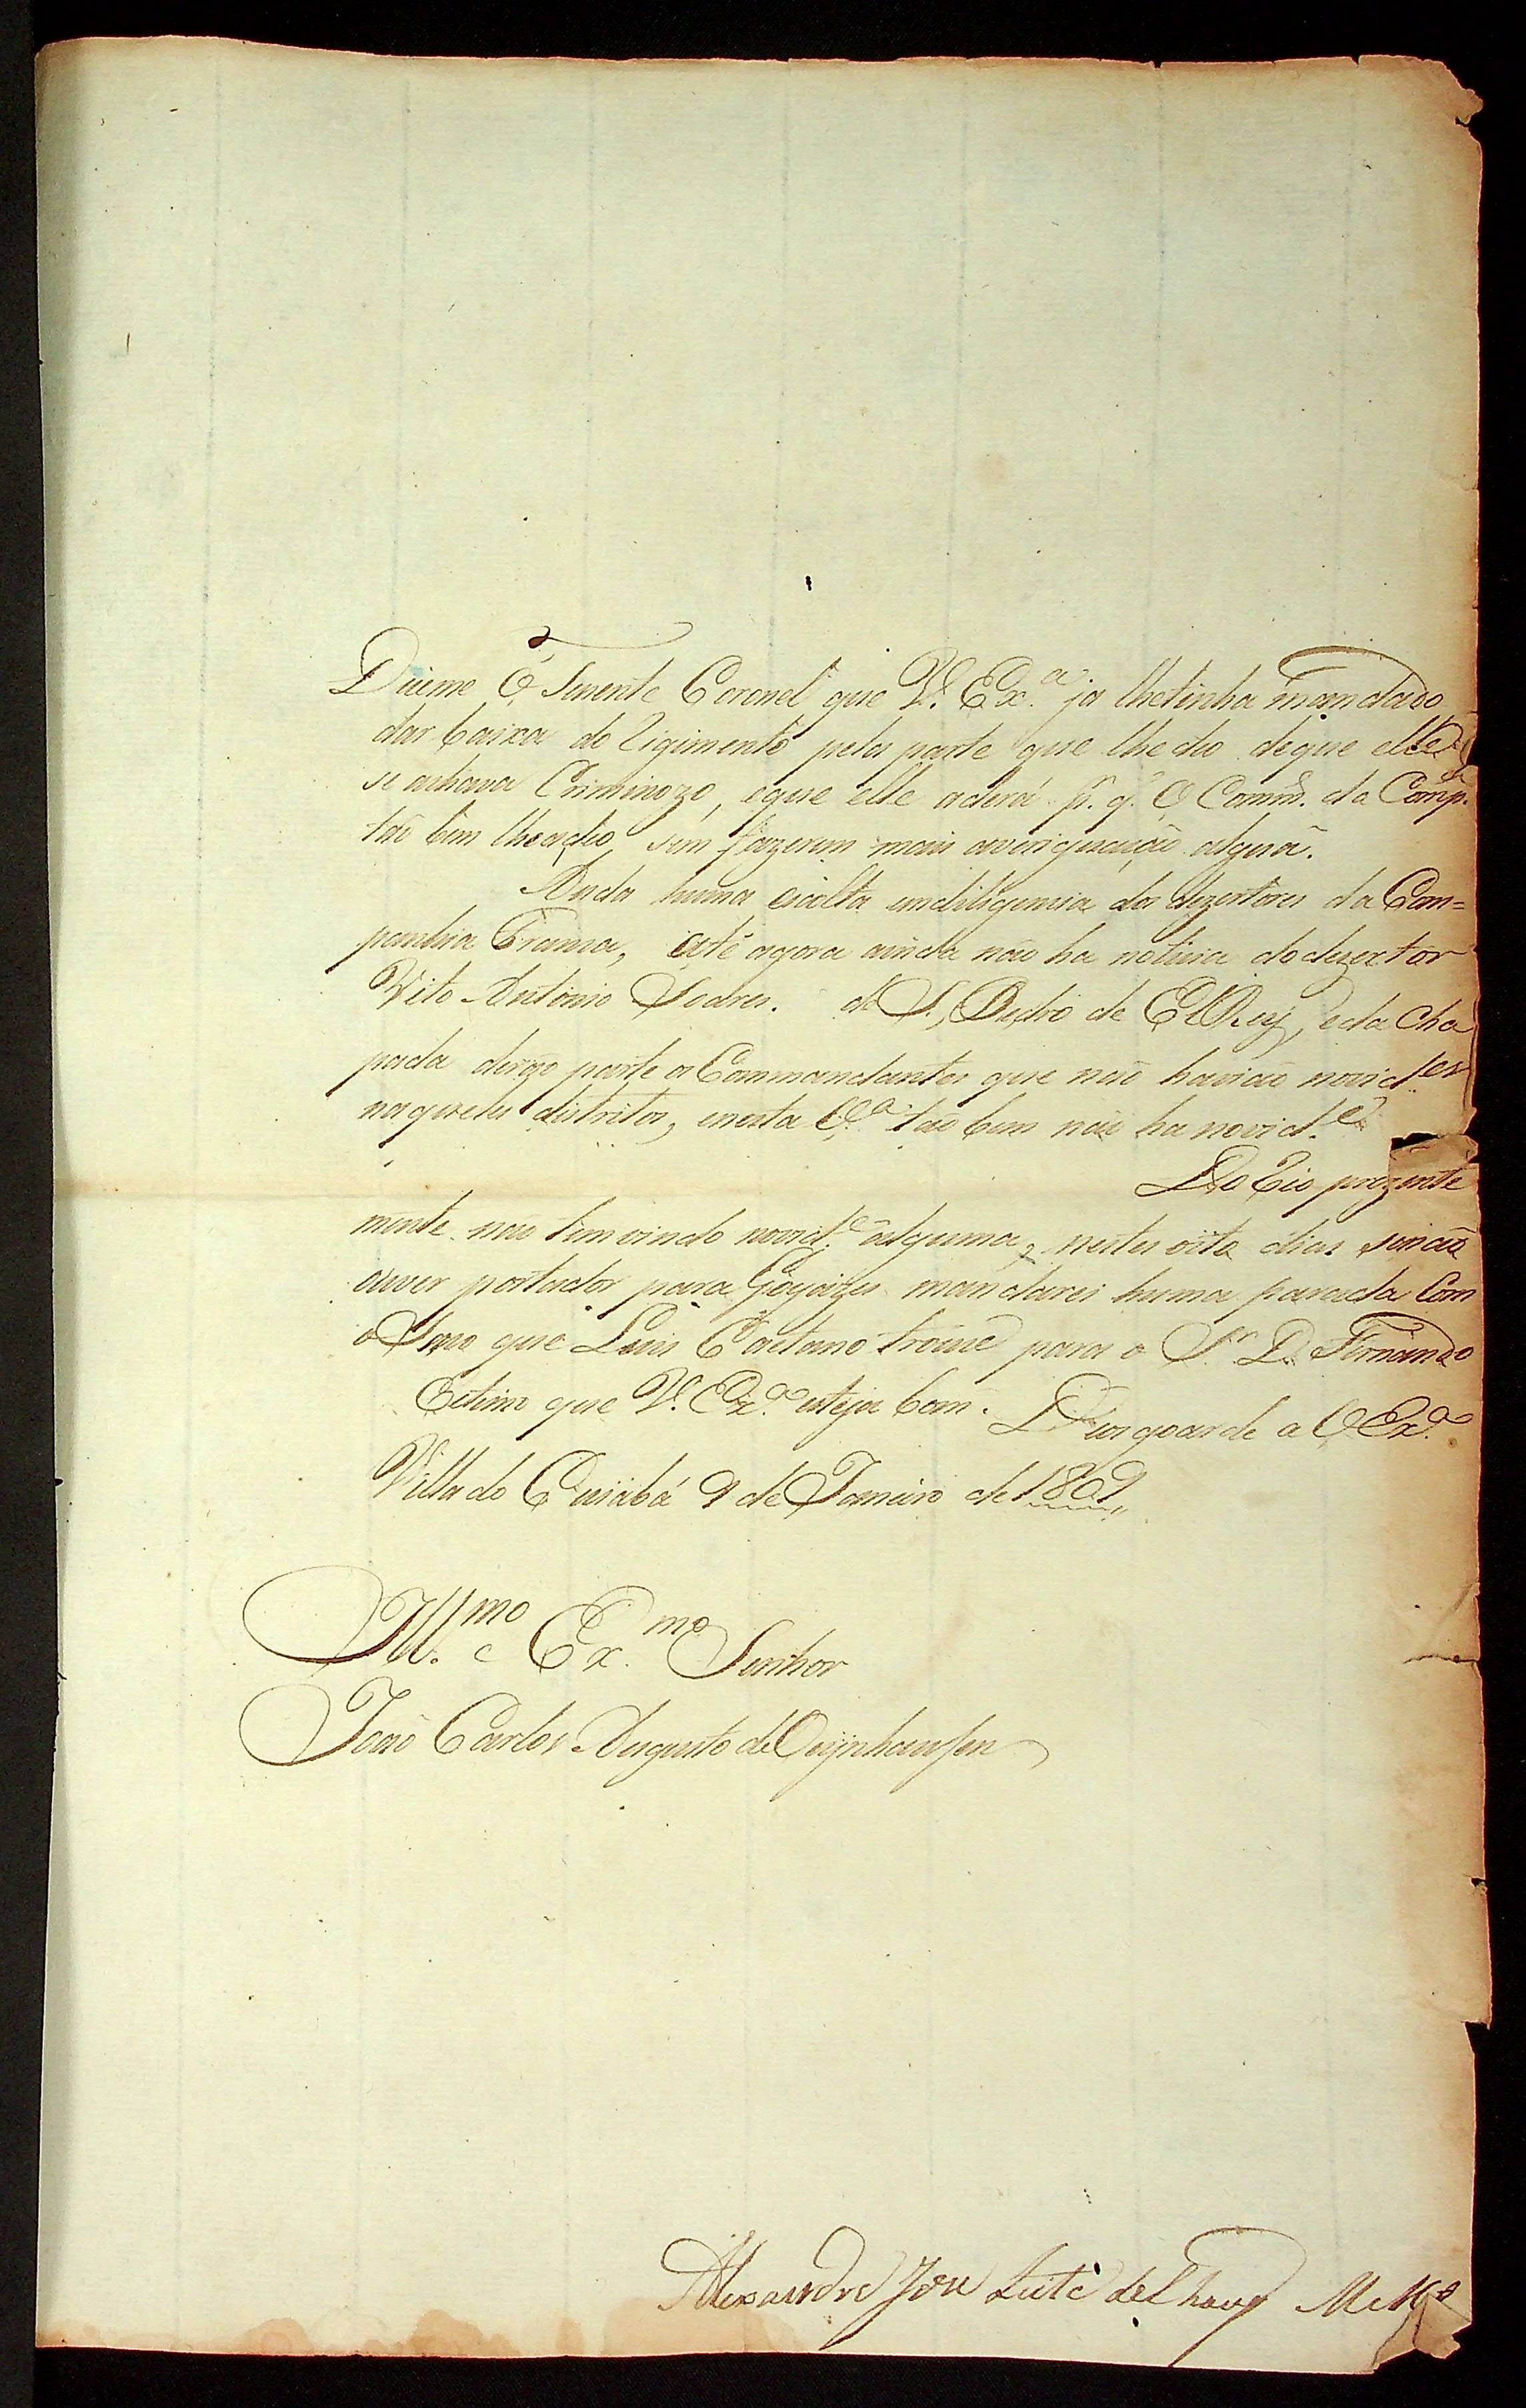 Diceme o Tenente Coronel que V. Ex.ª ja lhetinha mandado
dar baixa do Rigimento pela parte que lhe deo de que elle
se achava Criminozo, eque elle adera p.r q.' O Comm.e da Comp.ª
tão bem lheadeo sem fazerem mais averiguação alguã.
Anda huma escolta emdiligencia dos dezertores da Com=
panhia Franca, até agora ainda não ha noticia dodezertor
Vito Antonio Soares. de S. Pedro de ElRey, eda Cha
pada derão parte os Commandantes que não havião novid.es
naqueles distritos, enesta V.ª tão bem não ha novid.e
Do Rio prezente
mente não temvindo novid.e alguma, nestes oito dias senão
ouver portador para Goyazes mandarei huma parada Com
o que Luis Caetano trouce para o S.r D. Fernando
Estimo que V. Ex.ª esteja bom. D.s guarde a V Ex.ª
Villa do Cuiabá 9 de Janeiro de 1809,,
Ill.mo e Ex.mo Senhor
João Carlos Augusto de Oeijnhausen
Alexandre Joze Leite deChaves M